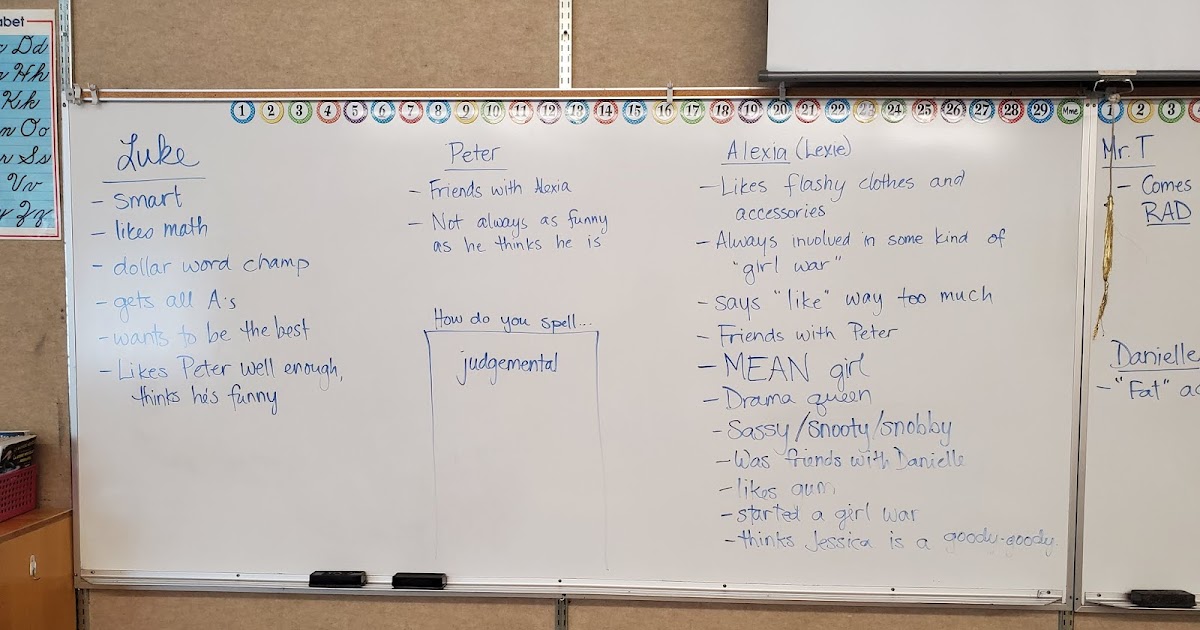 abet
Dd
Hh
Kk
Oo
Ss
Vv
Zz
1 2 3 4 5 6 7 8 9 10 11 12 13 14 15 16 17 18 19 20 21 22 23 24 25 26 27 28 29 Mme
1 2 3
Luke
- smart
- likes math
- dollar word champ
- gets all A's
- wants to be the best
- Likes Peter well enough,
thinks he's funny
Peter
- Friends with Alexia
- Not always as funny
as he thinks he is
How do you spell...
judgemental
Alexia (Lexie)
- Likes flashy clothes and
accessories
- Always involved in some kind of
"girl war"
- says "like" way too much
- Friends with Peter
- MEAN girl
- Drama queen
- Sassy/snooty/snobby
- Was friends with Danielle
- likes gum
- started a girl war
- thinks Jessica is a goody-goody
Mr. T
- Comes
RAD
Danielle
- "Fat" ac